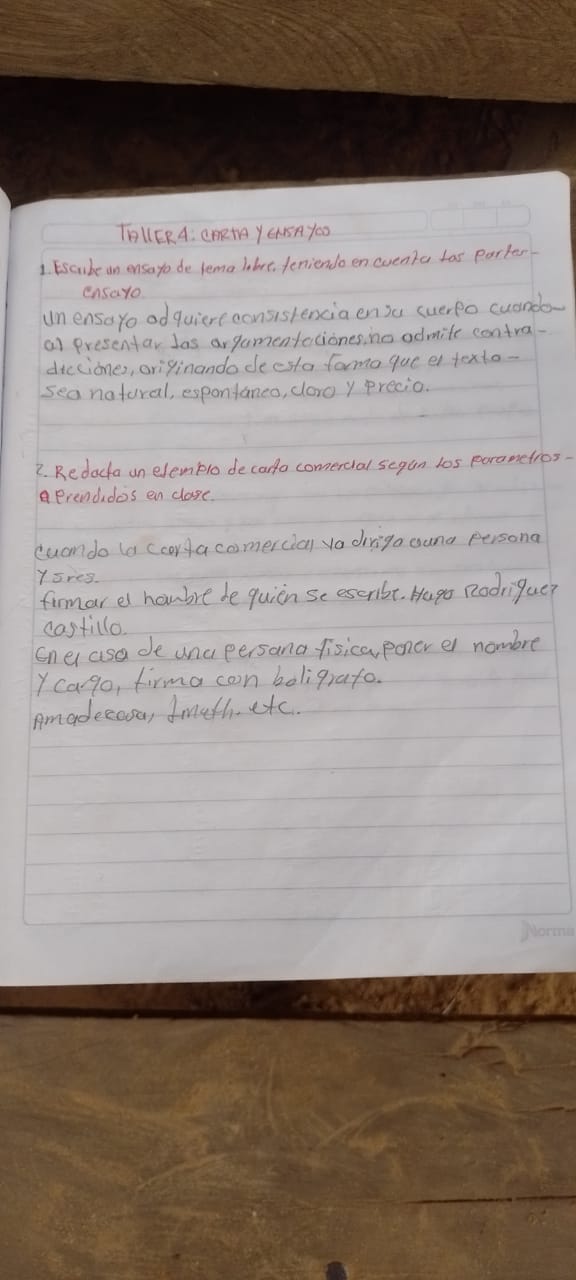 TALLER 4: CARTA Y ENSAYOO
1. Escribe un ensayo de tema libre, teniendo en cuenta las partes-
ensayo.
un ensayo adquiere consistencia en su cuerpo cuando
al presentar las argumentaciones, no admite contra-
dicciones, originando de esta forma que el texto-
sea natural, espontáneo, claro y precio.
2. Redacta un ejemplo de carta comercial según los parametros-
aprendidos en clase.
cuando la carta comercial va diriga a una persona
y sres.
firmar el hombre de quién se escribe. Hugo Rodriguez
castillo.
En el caso de una persona fisica, poner el nombre
y cargo, firma con boligrafo.
etc.
Norma